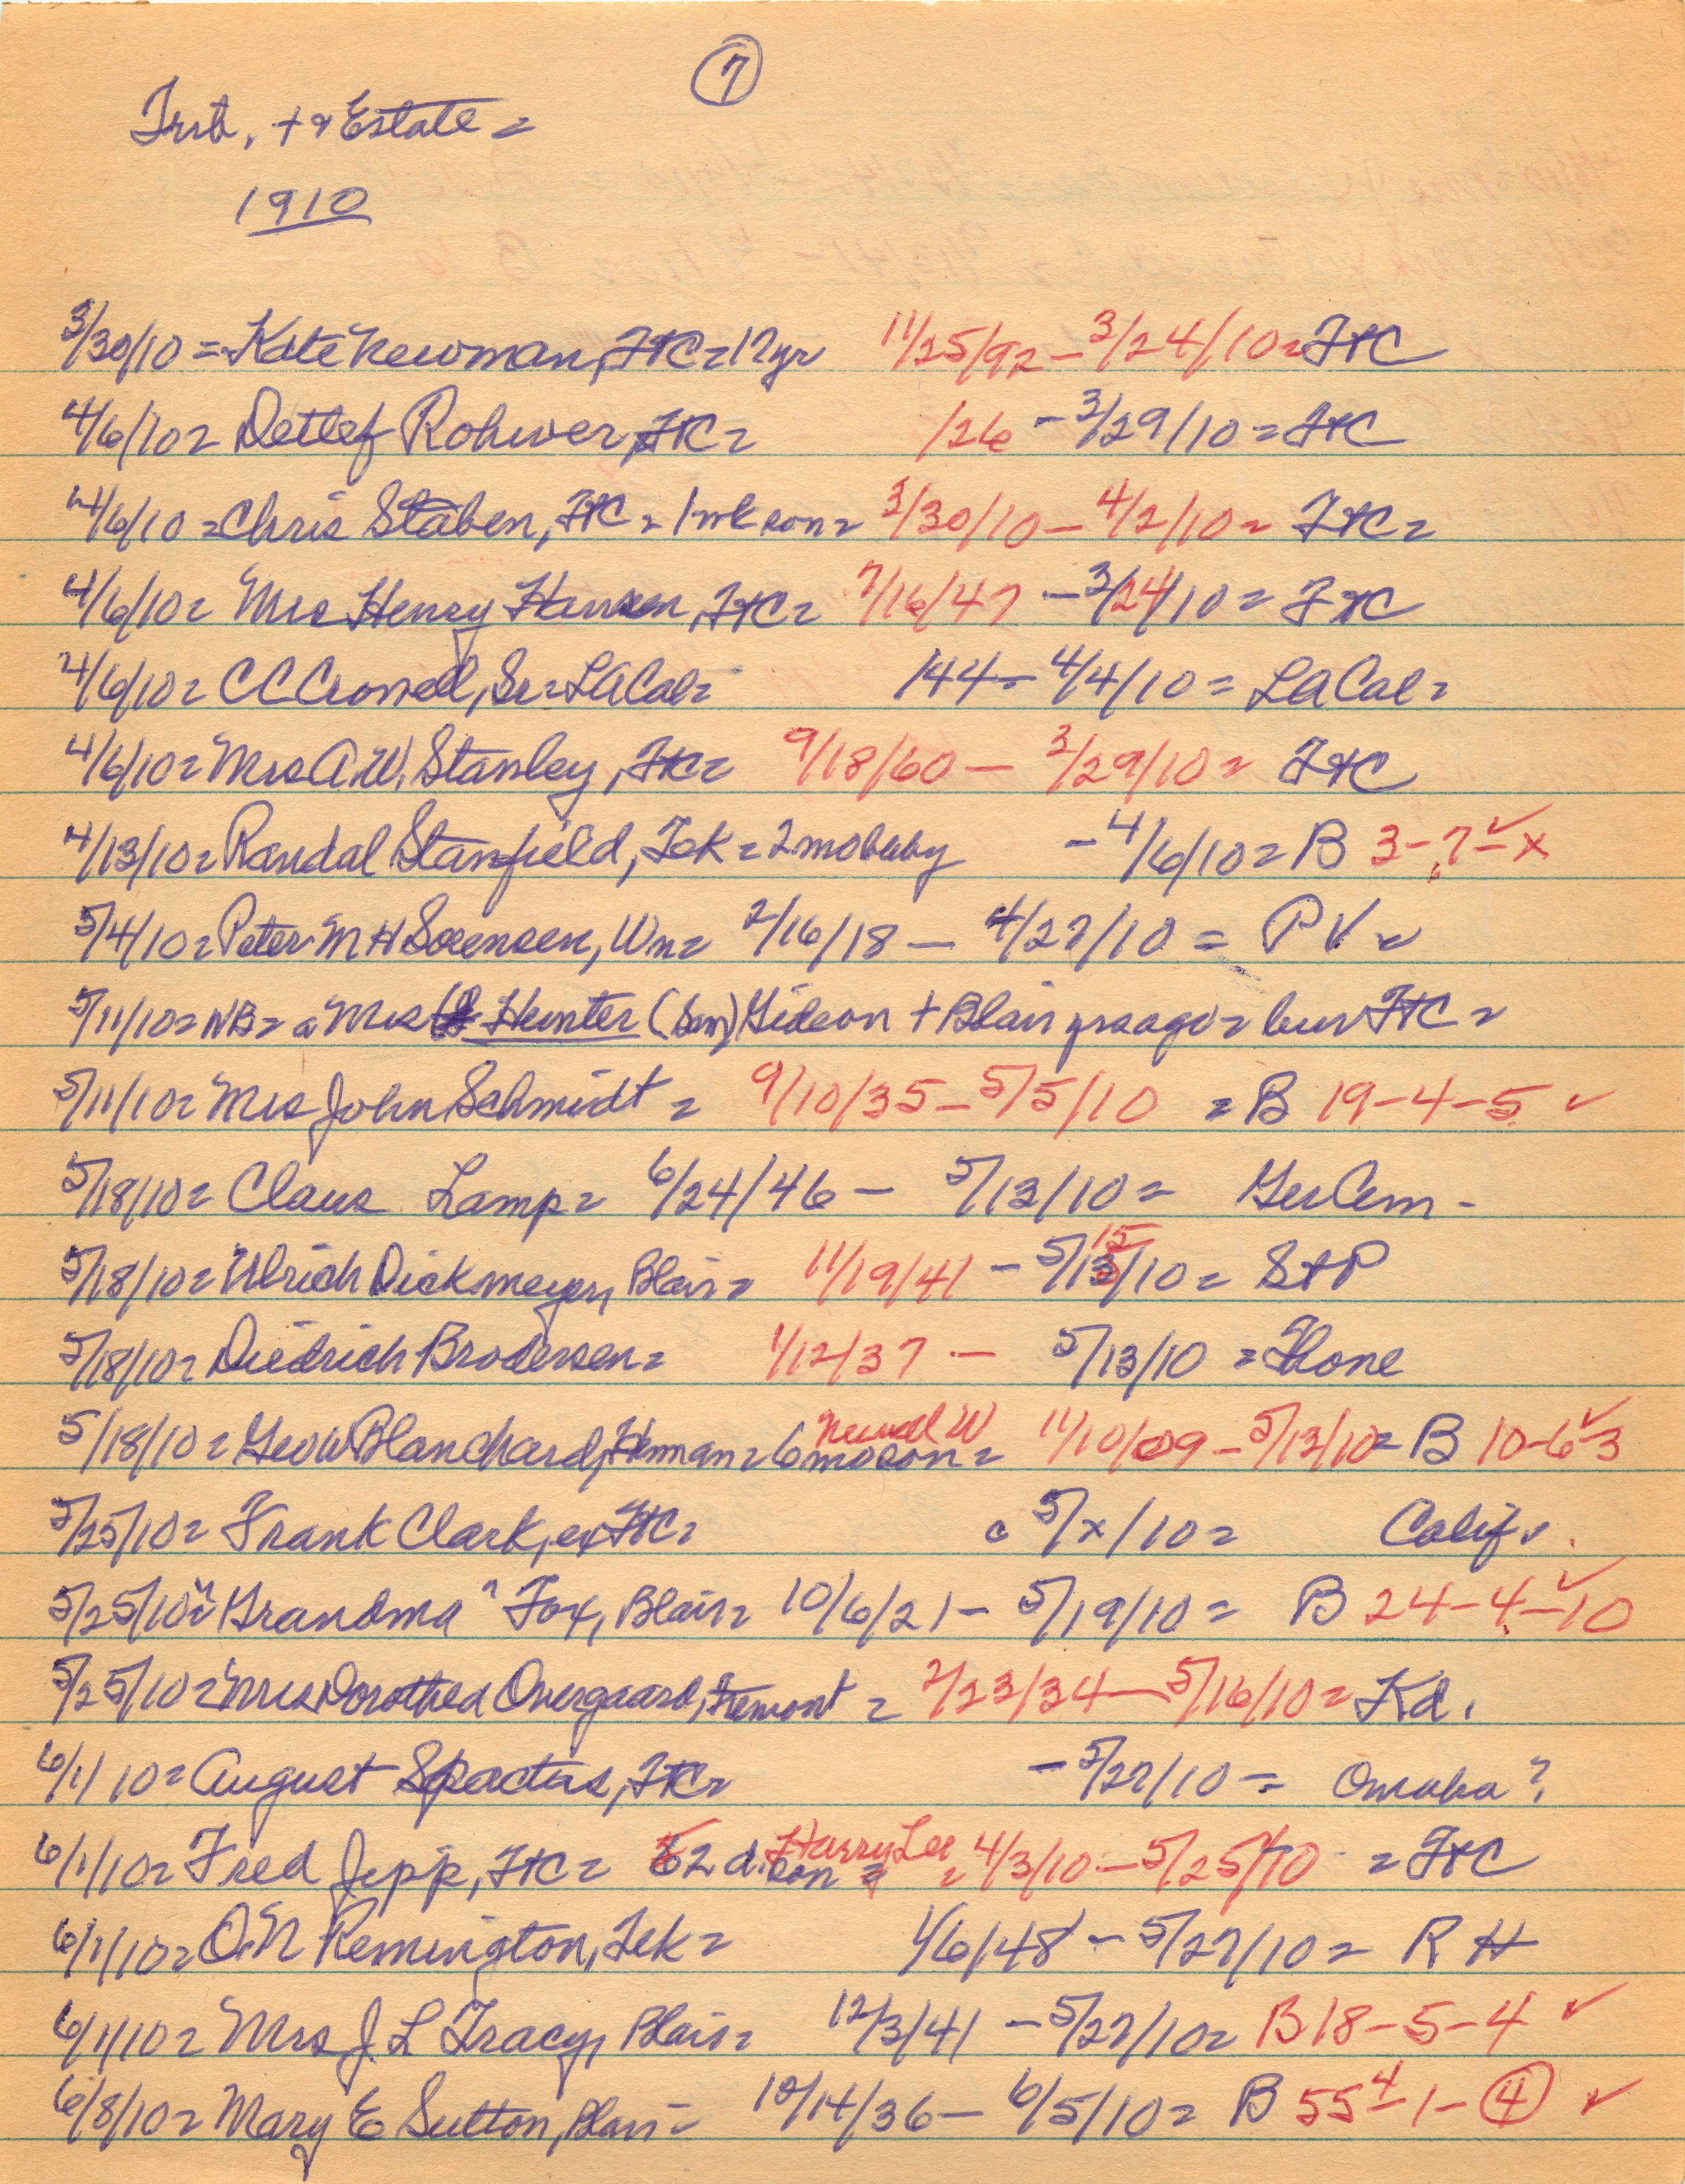 7
Trib. + Estate =
1910
3/30/10 = Kate Newman, FtC = 17yr 11/25/92 - 3/24/10 = FtC
4/6/10 = Detlef Rohwer, FtC = /26 - 3/29/10 = FtC
4/6/10 = Chris Staben, FtC = 1 wk son = 3/30/10 - 4/2/10 = FtC =
4/6/10 = Mrs Henry Hansen, FtC = 7/16/47 - 3/24/10 = FtC
4/6/10 = CC Crowell, Sr = LA Cal = 144 - 4/4/10 = LA Cal =
4/6/10 = Mrs A.W. Stanley, FtC = 9/18/60 - 3/29/10 = FtC
4/13/10 = Randal Stanfield, Tek = 2 mo baby - 4/6/10 = B 3-7-x
5/4/10 = Peter M H Sorensen, Wn = 2/16/18 - 4/27/10 = PV =
5/11/10 = NB = a Mrs Hunter (Sam) Gideon + Blair yrs ago = bur FtC =
5/11/10 = Mrs John Schmidt = 9/10/35 - 5/5/10 = B 19-4-5 ✓
5/18/10 = Claus Lamp = 6/24/46 - 5/13/10 = Ger Cem -
5/18/10 = Ulrich Dickmeyer, Blair = 11/19/41 - 5/15/10 = StP
5/18/10 = Diedrich Brodersen = 1/12/37 - 5/13/10 = Hone
5/18/10 = Geo W Blanchard, Herman = 6 mo son = Newell W 11/10/09 - 5/13/10 = B 10-6-3 ✓
5/25/10 = Frank Clark, ex FtC = c 5/x/10 = Calif.
5/25/10 = "Grandma" Fox, Blair = 10/6/21 - 5/19/10 = B 24-4-10 ✓
5/25/10 = Mrs Dorothea Overgaard, Fremont = 2/23/34 - 5/16/10 = Kd.
6/1/10 = August FtC = - 5/27/10 = Omaha?
6/1/10 = Fred Jipp, FtC = 52 d. son = Harry Lee = 4/3/10 - 5/25/10 = FtC
6/1/10 = O.N Remington, Tek = 1/6/48 - 5/27/10 = R H
6/1/10 = Mrs J L Tracy, Blair = 12/3/41 - 5/27/10 = B 18-5-4 ✓
6/8/10 = Mary E Sutton, Blair = 10/14/36 - 6/5/10 = B 55 4 - 1 - 4 ✓